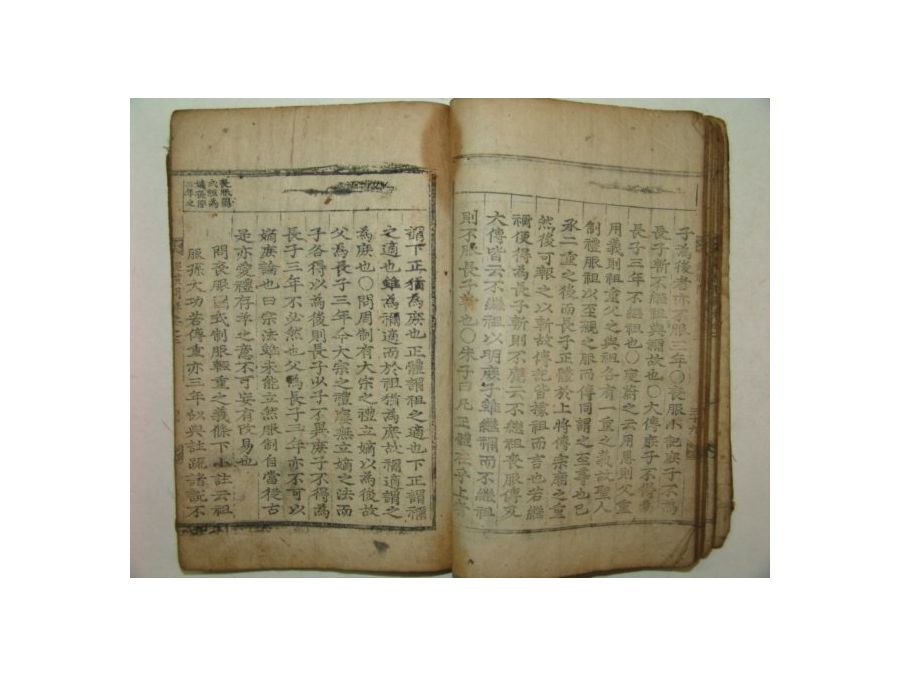 子為後者亦不服三年〇喪服小記庶子不為
長子斬不繼祖與禰故也〇大傳庶子不得為
長子三年不繼祖也〇庾蔚之云用恩則父重
用義則祖重父之與祖各有一重之義故聖人
制禮服祖以至親之服而傳同謂之至尊也已
承二重之後而長子正體於上將傳宗廟之重
然後可報之以斬故傳記皆據祖而言也若繼
禰便得為長子斬則不應云不繼祖喪服傳及
大傳皆云不繼祖以明庶子雖繼禰而不繼祖
則不服長子斬也〇朱子曰凡正體在乎上者
謂下正猶為庶也正體謂祖之適也下正謂禰
之適也雖為禰適而於祖猶為庶故禰適謂之
為庶也〇問周制有大宗之禮立嫡以為後故
父為長子三年今大宗之禮廢無立嫡之法而
子各得以為後則長子少子不異庶子不得為
長子三年不必然也父為長子三年亦不可以
嫡庶論也曰宗法雖未能立然服制自當從古
是亦愛禮存羊之意不可妄有改易也
問喪服圖式制服輕重之義條下小註云祖
服孫大功若傳重亦三年似與註疏諸說不
喪服圖
式祖為
嫡孫
三年之